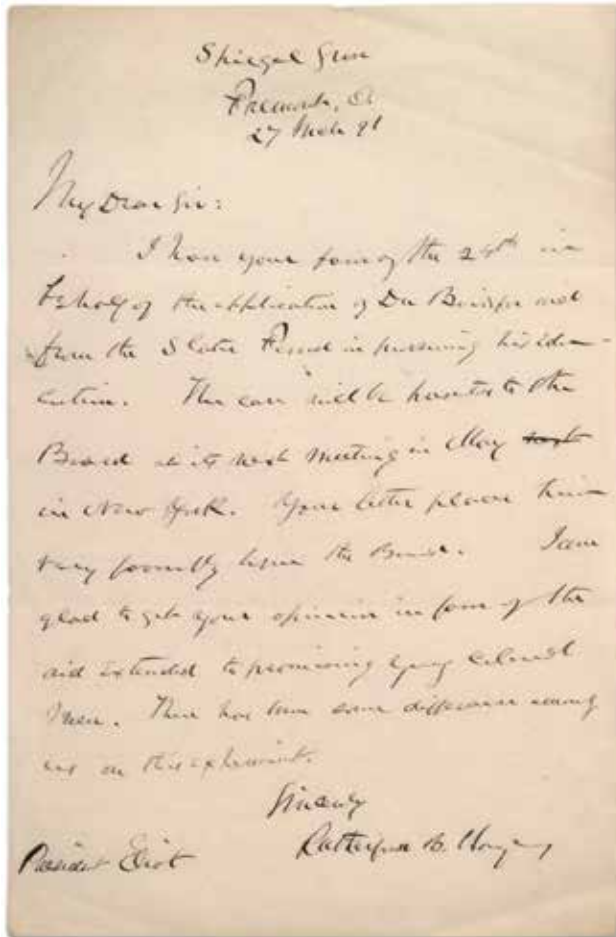 Spiegel Grove
Fremont, O.
27 Mch 91
My Dear Sir:
I have your favor of the 24th in
behalf of the application of Du Bois for aid
from the Slater Fund in pursuing his edu-
cation. The case will be presented to the
Board at its next meeting in May
in New York. Your letter places him
very favorably before the Board. I am
glad to get your opinion in favor of the
aid extended to promising young colored
men. There has been some difference among
us on this experiment.
Sincerely
Rutherford B. Hayes
President Eliot